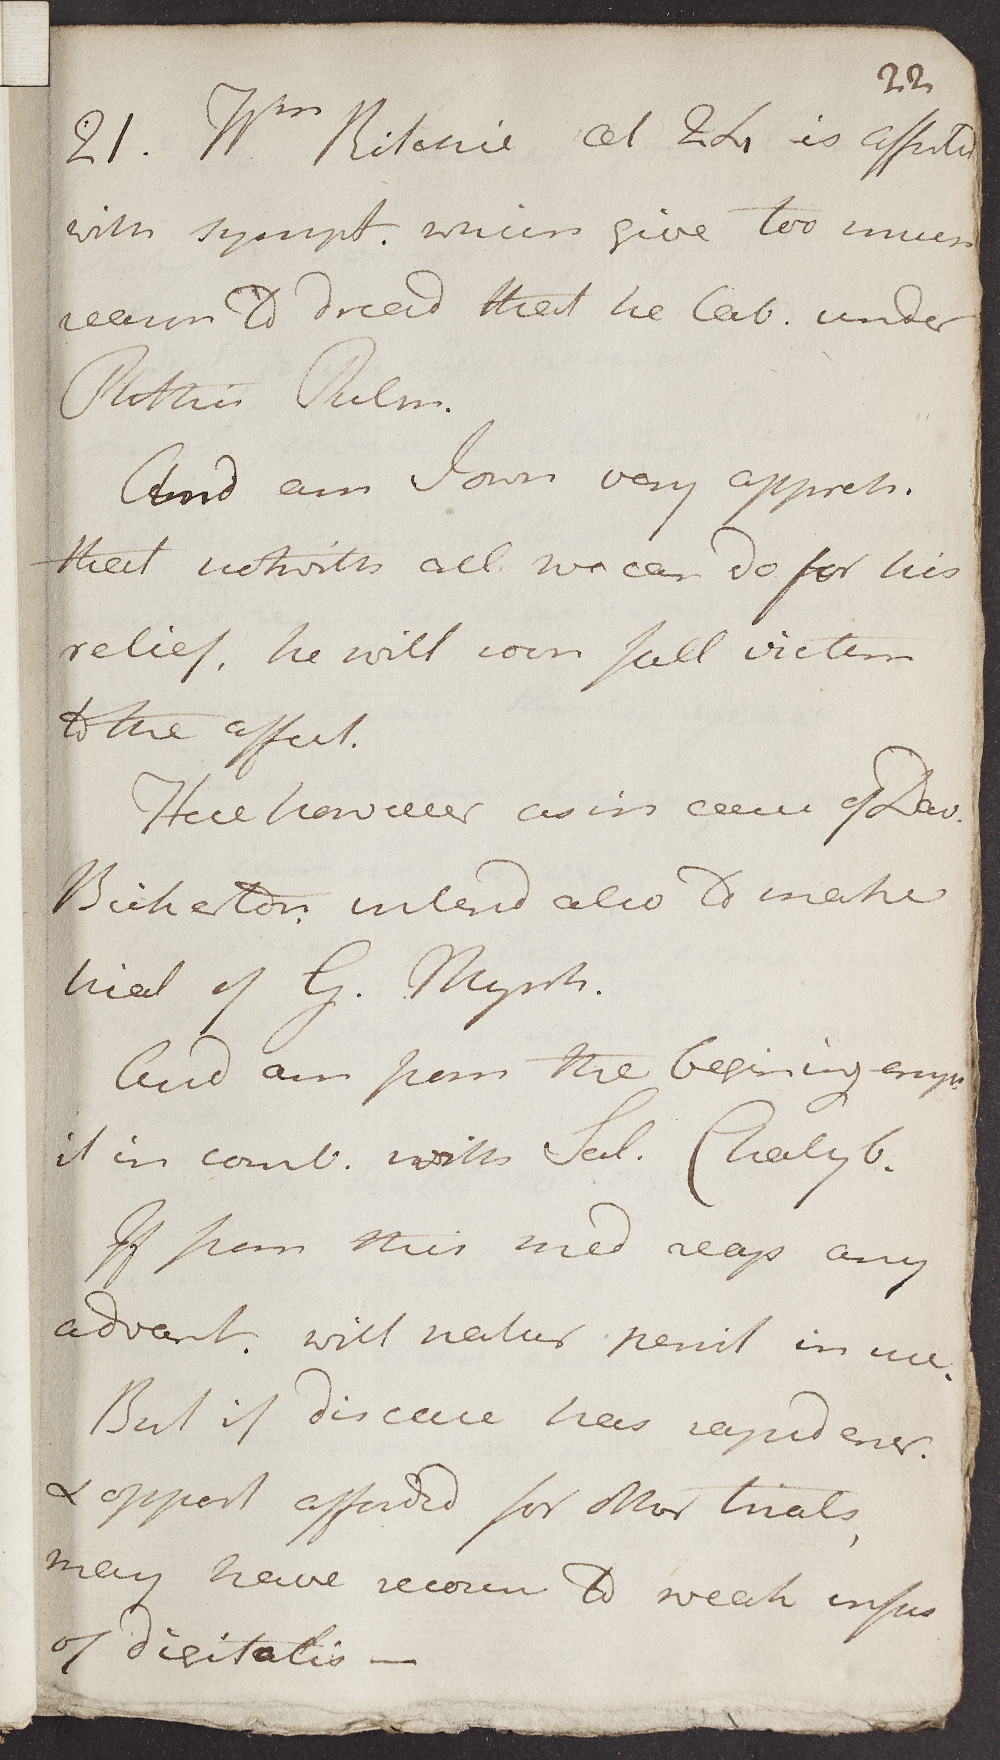 22
21. Wm Ritchie aet 24 is affected
with sympt. which give too much
reason to dread that he lab. under
Phthisis Pulm.
And am I own very appreh.
that notwith all we can do for his
relief, he will soon fall victim
to the affect.
Here however as in case of Dav.
Bickerton intend also to make
trial of G. Myrrh.
And am from the begining
it in comb. with Sal. Chalyb.
If from this med reap any
advant. will natur persist in use.
But if disease has rapid
& opport afforded for other trials,
may have recourse to weak infus
of digitalis —